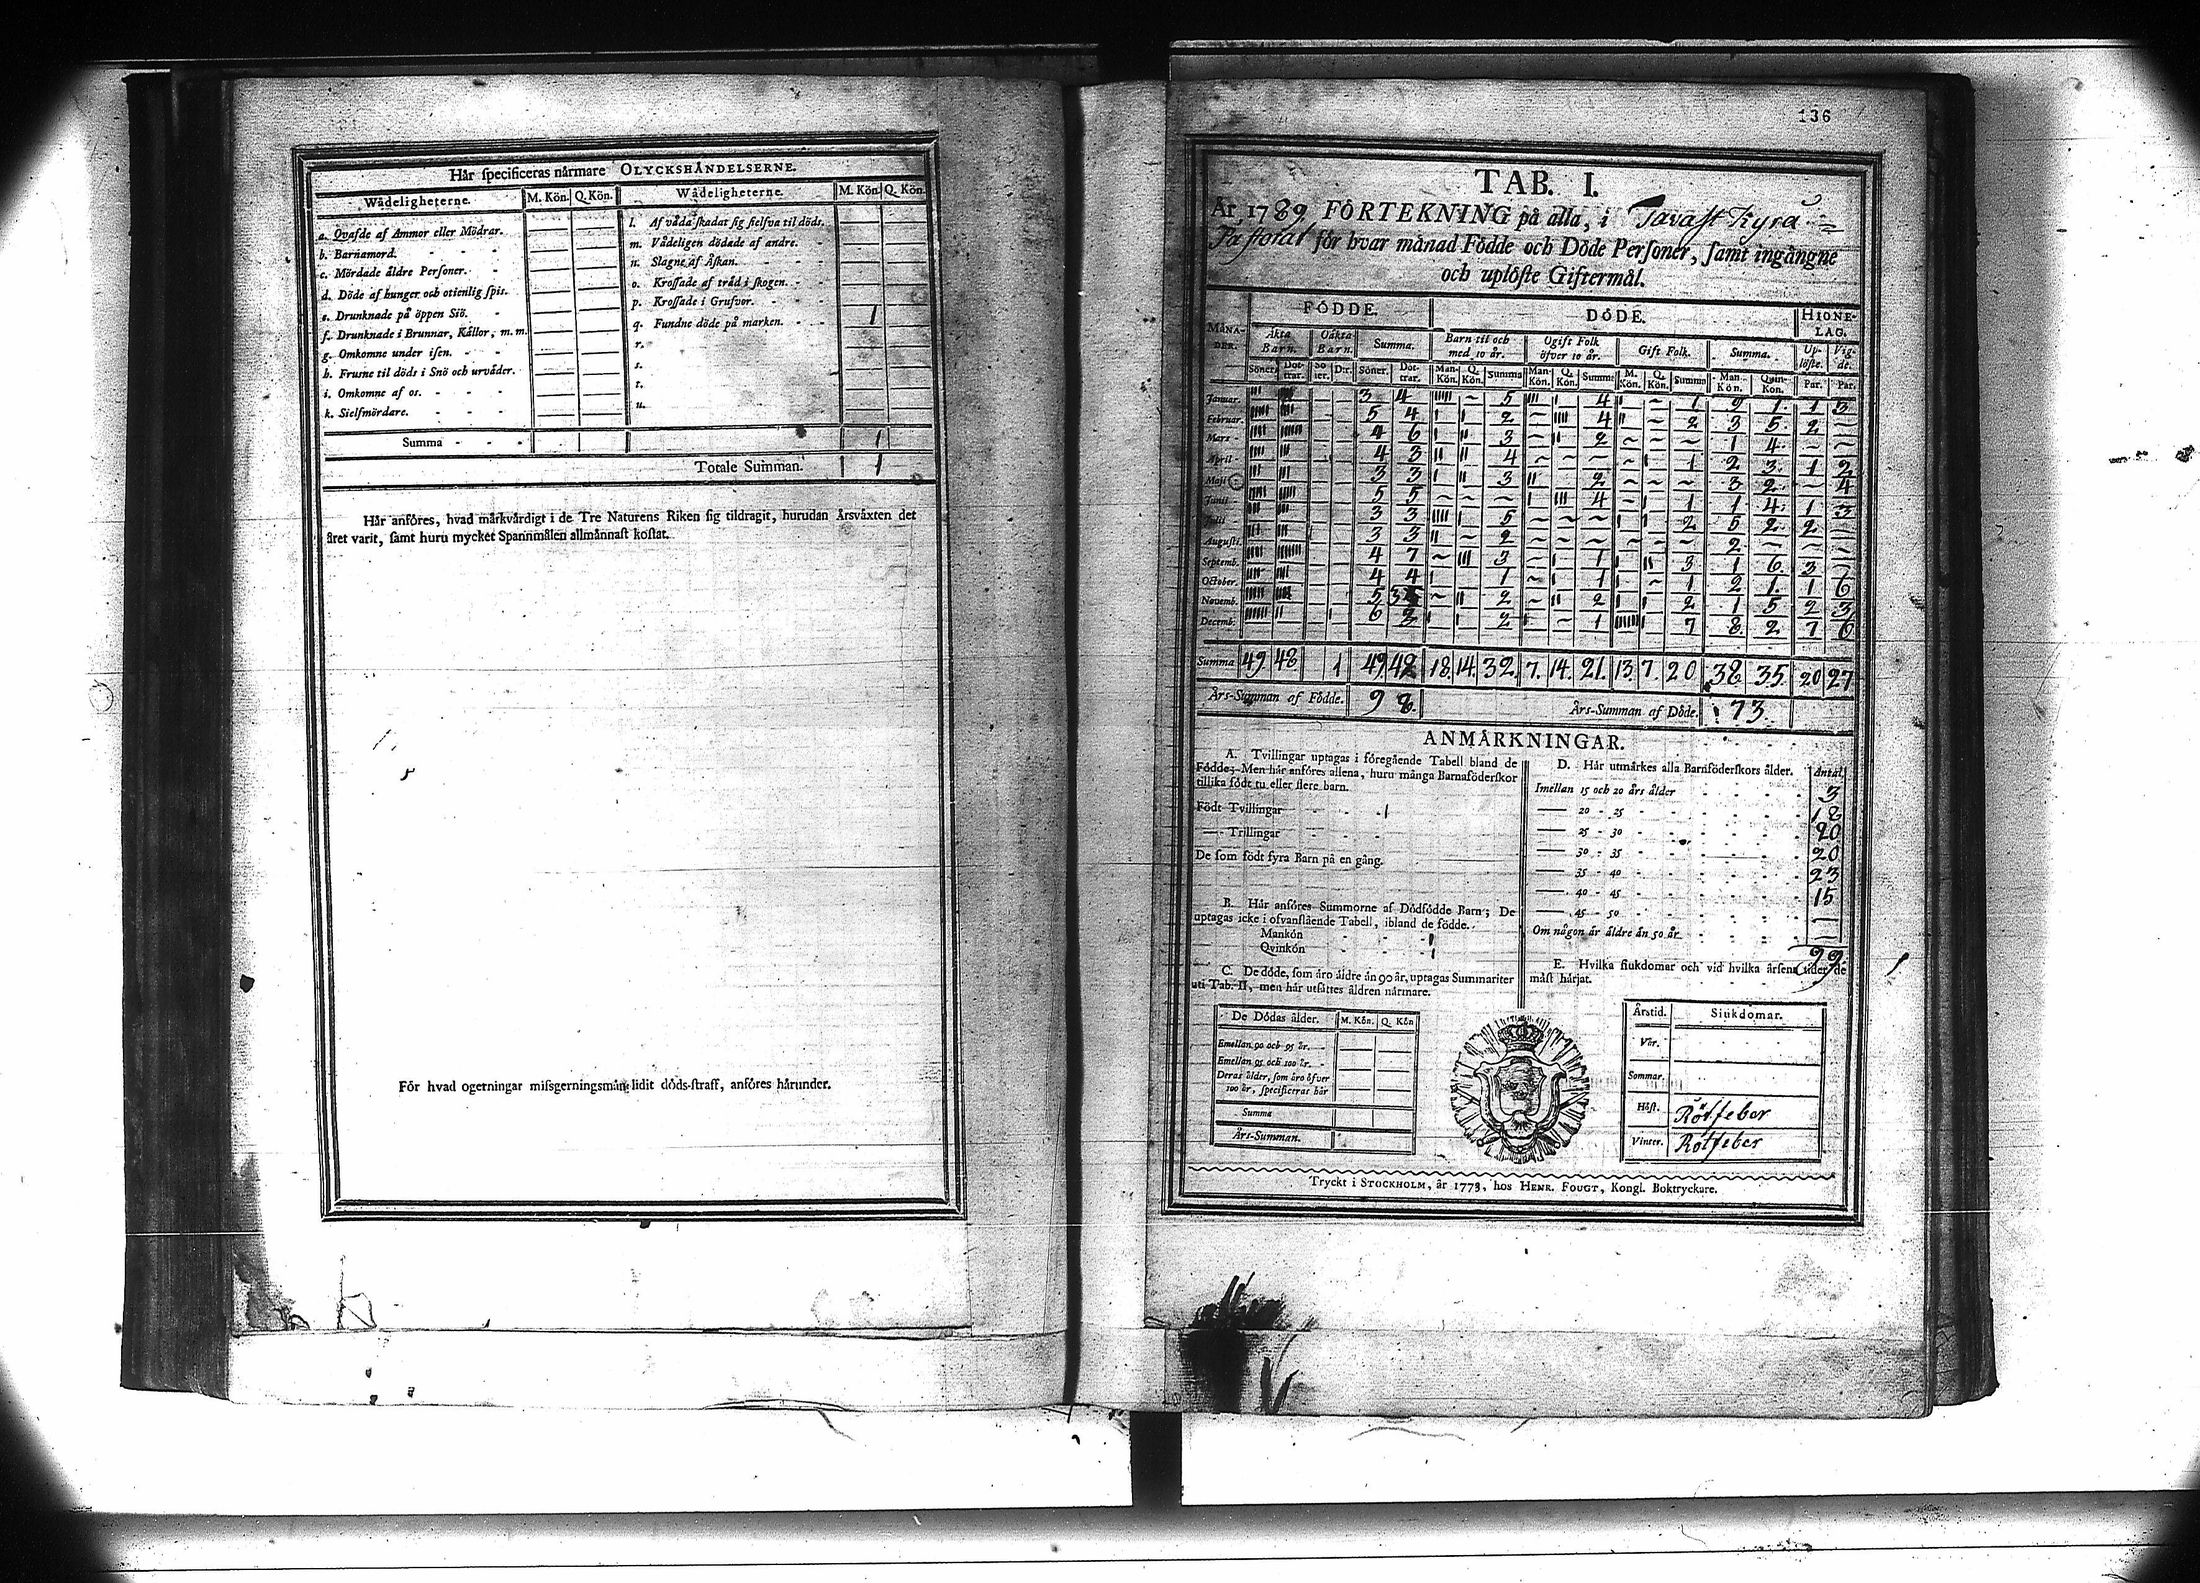 Hår specificeras nårmare OLYCKSHÅNDELSERNE.
Wådeligheterne. M. Kön. Q. Kön. Wådeligheterne. M. Kön. Q. Kön.
a. Qvafde af Ammor eller Mödrar.
b. Barnamord.
c. Mördade åldre Personer.
d. Döde af hunger och otienlig spis.
e. Drunknade på öppen Siö.
f. Drunknade i Brunnar, Kållor, m. m.
g. Omkomne under isen.
h. Frusne til döds i Snö och urvåder.
i. Omkomne af os.
k. Sielfmördare.
Summa
l. Af våda skadat sig sielfva til döds.
m. Vådeligen dödade af andre.
n. Slagne af Åskan.
o. Krossade af tråd i skogen.
p. Krossade i Grufvor.
q. Fundne döde på marken. 1
r.
s.
t.
u.
1
Totale Summan. 1
Hår anföres, hvad mårkvårdigt i de Tre Naturens Riken sig tildragit, hurudan Årsvåxten det
året varit, samt huru mycket Spannmålen allmånnast kostat.
För hvad ogerningar missgerningsmån lidit döds-straff, anföres hårunder.
136
TAB. I.
År 1789 FÖRTEKNING på alla, i Tavast Kyra
Pastorat för hvar månad Födde och Döde Personer, samt ingångne
och uplöste Giftermål.
FÖDDE. DÖDE. HIONE-
LAG.
MÅNA-
DER. Åkta
Barn. Oåkta
Barn. Summa. Barn til och
med 10 år. Ogift Folk
öfver 10 år. Gift Folk. Summa. Up-
löste. Vig-
de.
Söner. Dot-
trar. Sö
ner. Dtr. Söner. Dot-
trar. Man-
Kön. Q.
Kön. Summa Man-
Kön. Q.
Kön. Summa M.
Kön. Q.
Kön. Summa Man-
Kön. Quin-
Kon. Par. Par.
Januar. 3 4 5 4 1 9 1 1 3
Februar. 5 4 2 4 2 3 5 2
Mars 4 6 3 2 1 4
April 4 3 4 1 2 3 1 2
Maji 3 3 3 2 3 2 4
Junii 5 5 4 1 1 4 1 3
Julii 3 3 5 2 5 2 2
Augusti. 3 3 2 2
Septemb. 4 7 3 1 3 1 6 3
October. 4 4 1 1 1 2 1 1 6
Novemb. 5 2 2 2 1 5 2 3
Decemb. 6 2 2 1 7 8 2 7 6
Summa 49 48 1 49 48 18. 14. 32. 7. 14. 21. 13. 7. 20 38 35 20 27
Års-Summan af Födde. 98. Års-Summan af Döde. 73.
ANMÅRKNINGAR.
A. Tvillingar uptagas i föregående Tabell bland de
Födde; Men hår anföres allena, huru många Barnaföderskor
tillika födt tu eller flere barn.
Födt Tvillingar 1
— Trillingar
De som födt fyra Barn på en gång.
B. Hår anföres Summorne af Dödfödde Barn; De
uptagas icke i ofvanstående Tabell, ibland de födde.
Mankön 1
Qvinkön 1
C. De döde, som åro åldre ån 90 år, uptagas Summariter
uti Tab. II, men hår utsåttes åldren nårmare.
De Dödas ålder. M. Kön. Q. Kön
Emellan 90 och 95 år.
Emellan 95 och 100 år.
Deras ålder, som åro öfver
100 år, specificeras hår
Summa
Års-Summan.
D. Hår utmårkes alla Barnföderskors ålder. Antal
Imellan 15 och 20 års ålder 3
— 20 - 25 18
— 25 - 30 20
— 30 - 35 20
— 35 - 40 23
— 40 - 45 15
— 45 - 50 —
Om någon år åldre ån 50 år —
99
E. Hvilka siukdomar och vid hvilka årsens tider de
måst hårjat.
Årstid. Siukdomar.
Vår.
Sommar.
Höst. Rötfeber
Vinter. Rötfeber
Tryckt i STOCKHOLM, år 1773, hos HENR. FOUGT, Kongl. Boktryckare.